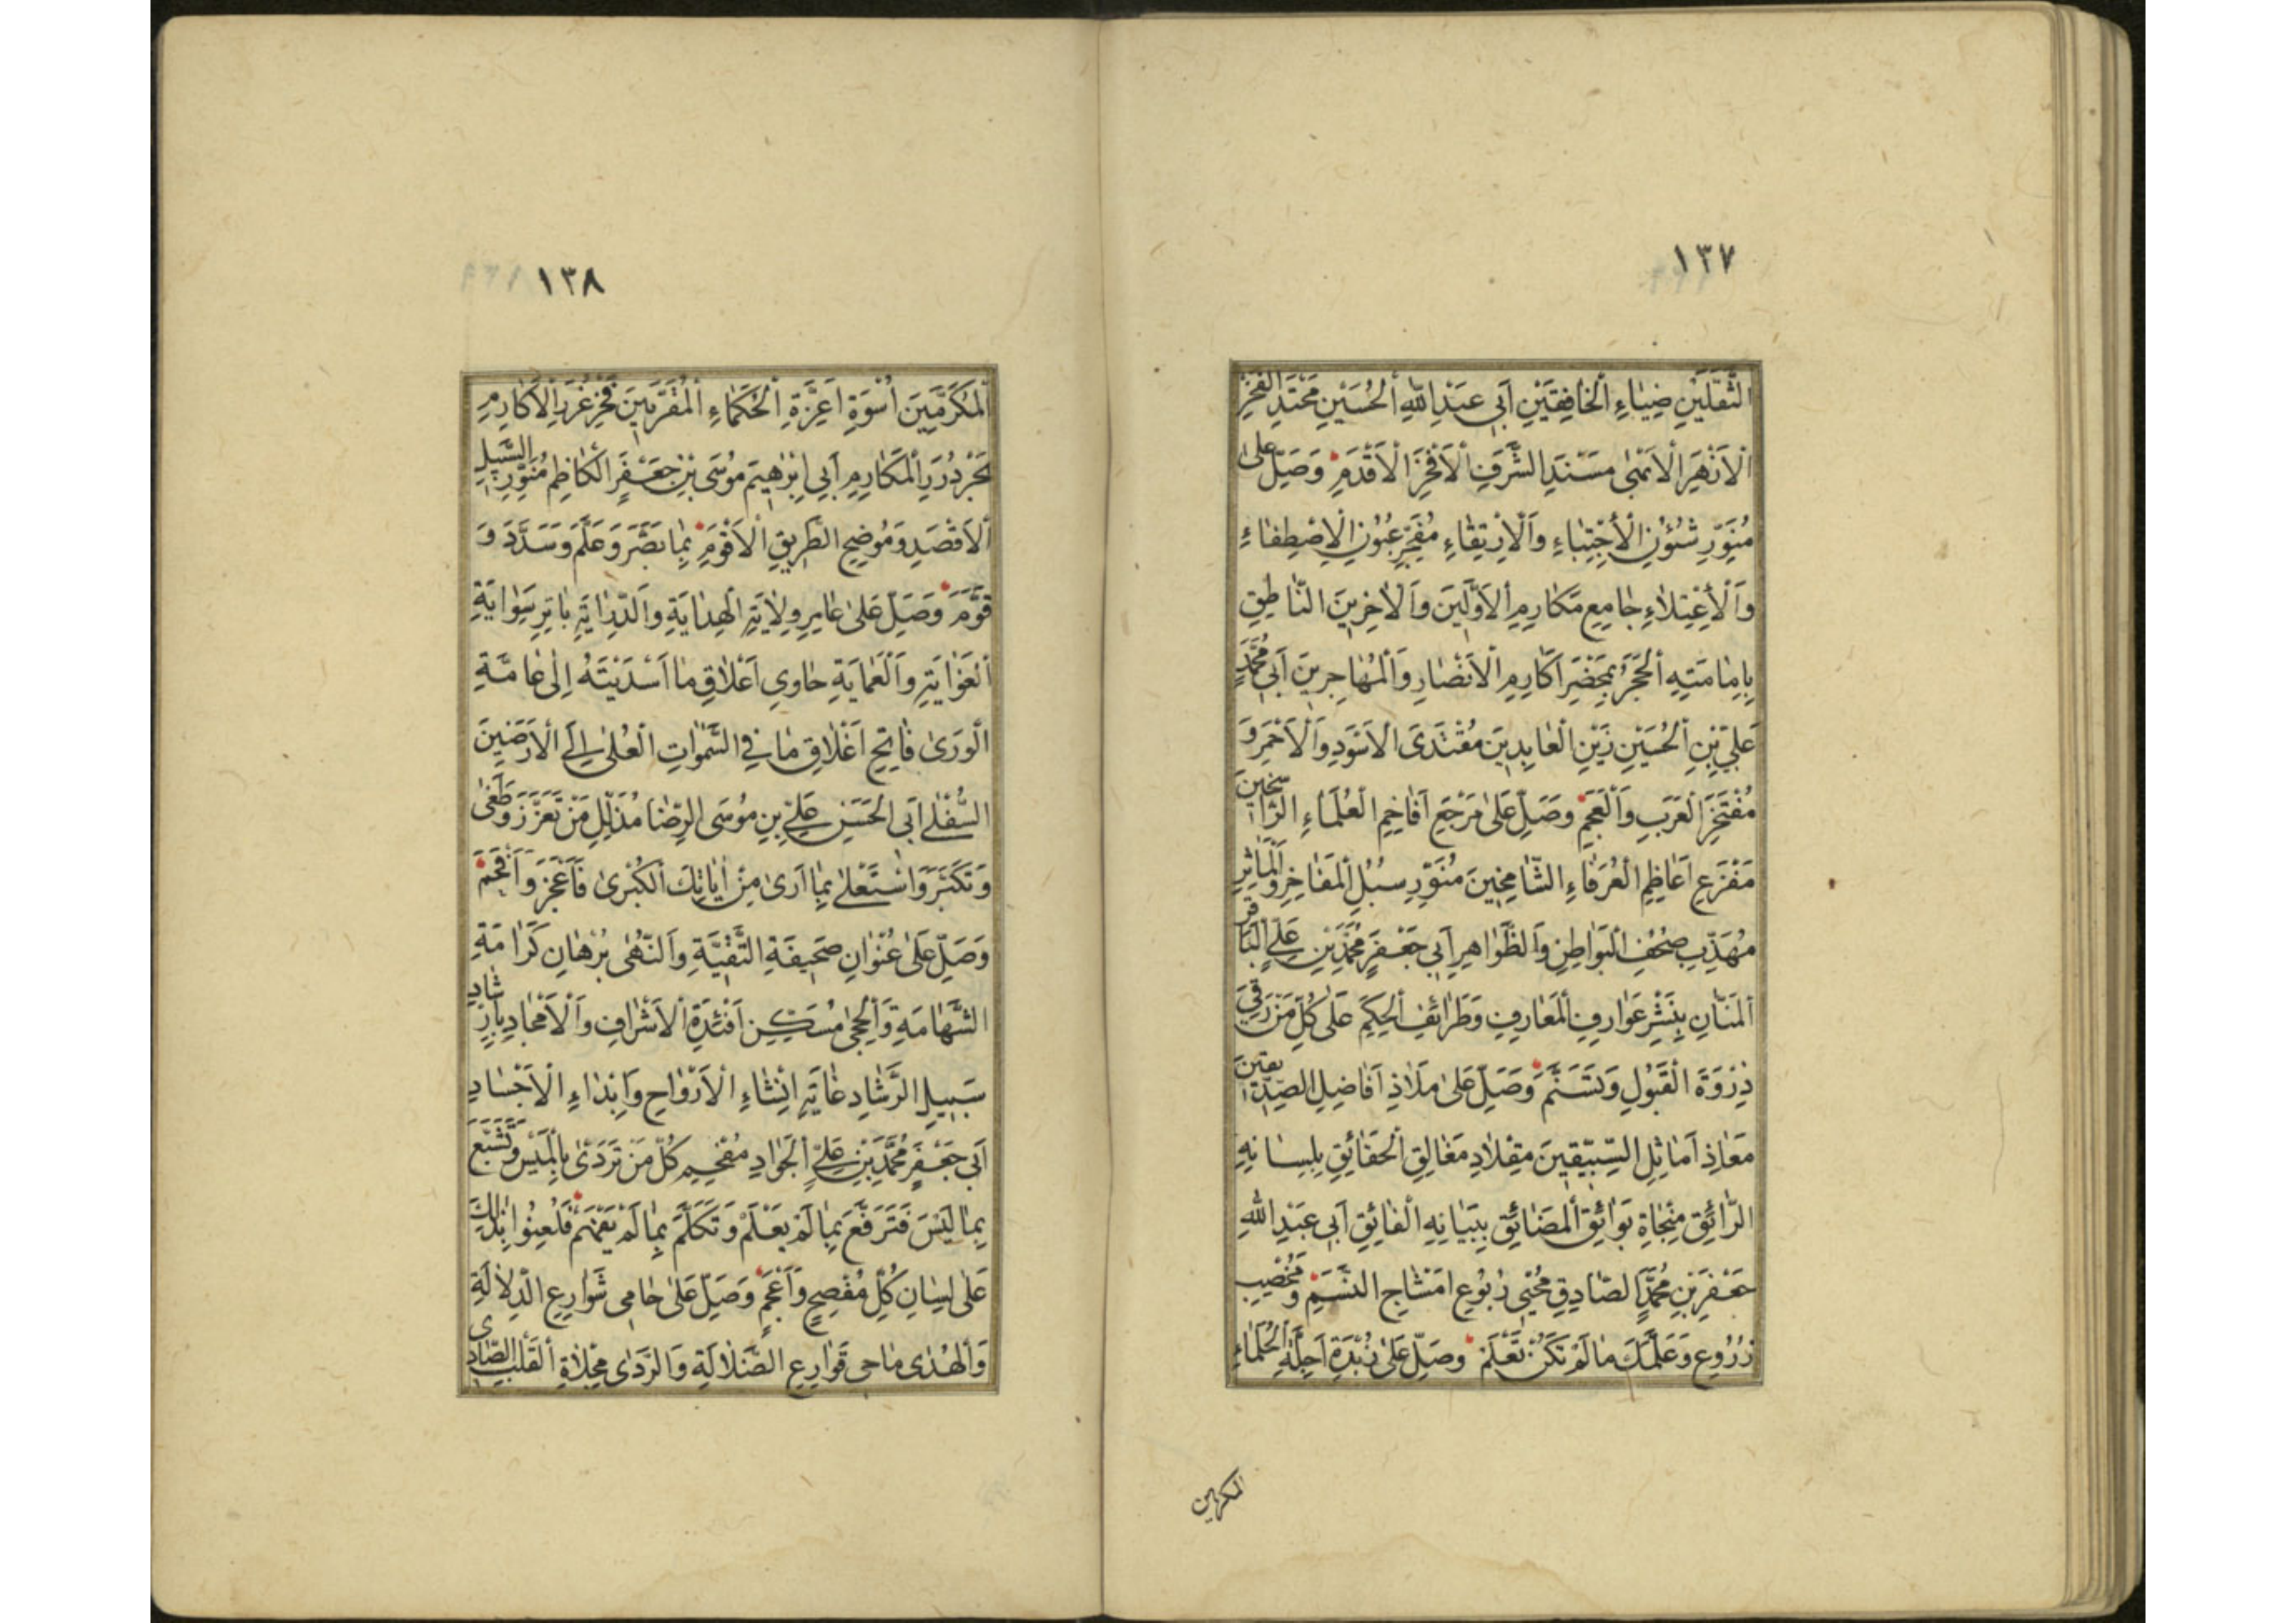 ١٣٧
الثَّقَلَيْنِ ضِيَاءِ الْخَافِقَيْنِ اَبِي عَبْدِ اللّٰهِ الْحُسَيْنِ مَحْتَدِ الْفَخْرِ
الْاَزْهَرِ الْاَسْنٰى مَسْنَدِ الشَّرَفِ الْاَفْخَرِ الْاَقْدَمِ وَصَلِّ عَلٰى
مُنَوِّرِ شُئُوْنِ الْاِجْتِبَاءِ وَالْاِرْتِقَاءِ مُفَجِّرِ عُيُوْنِ الْاِصْطِفَاءِ
وَالْاِعْتِلَاءِ جَامِعِ مَكَارِمِ الْاَوَّلِيْنَ وَالْاٰخِرِيْنَ النَّاطِقِ
بِاِمَامَتِهِ الْحَجَرُ بِمَحْضَرِ اَكَارِمِ الْاَنْصَارِ وَالْمُهَاجِرِيْنَ اَبِي مُحَمَّدٍ
عَلِيِّ بْنِ الْحُسَيْنِ زَيْنِ الْعَابِدِيْنَ مُقْتَدَى الْاَسْوَدِ وَالْاَحْمَرِ وَ
مُفْتَخَرِ الْعَرَبِ وَالْعَجَمِ وَصَلِّ عَلٰى مَرْجَعِ اَفَاخِمِ الْعُلَمَاءِ الرَّاسِخِيْنَ
مَفْزَعِ اَعَاظِمِ الْعُرَفَاءِ الشَّامِخِيْنَ مُنَوِّرِ سُبُلِ الْمَفَاخِرِ وَالْمَاٰثِرِ
مُهَذِّبِ صُحُفِ الْبَوَاطِنِ وَالظَّوَاهِرِ اَبِي جَعْفَرٍ مُحَمَّدِ بْنِ عَلِيٍّ الْبَاقِرِ
الْمَنَّانِ بِنَشْرِ عَوَارِفِ الْمَعَارِفِ وَطَرَائِفِ الْحِكَمِ عَلٰى كُلِّ مَنْ رَقِيَ
ذِرْوَةَ الْقَبُوْلِ وَتَسَنَّمَ وَصَلِّ عَلٰى مَلَاذِ اَفَاضِلِ الصِّدِّيْقِيْنَ
مَعَاذِ اَمَاثِلِ السِّبِّيْقِيْنَ مِقْلَادِ مَغَالِقِ الْحَقَائِقِ بِلِسَانِهِ
الرَّائِقِ مَنْجَاةِ بَوَائِقِ الْمَضَائِقِ بِبَيَانِهِ الْفَائِقِ اَبِي عَبْدِ اللّٰهِ
جَعْفَرِ بْنِ مُحَمَّدٍ الصَّادِقِ مُحْيِي رُبُوْعِ اَمْشَاجِ النَّسَمِ وَمُخْصِبِ
زُرُوْعِ وَعَلَّمَكَ مَا لَمْ تَكُنْ تَعْلَمْ وَصَلِّ عَلٰى زُبْدَةِ اَجِلَّةِ الْحُلَمَاءِ
المكرمين
١٣٨
الْمُكَرَّمِيْنَ اُسْوَةِ اَعِزَّةِ الْحُكَمَاءِ الْمُقَرَّبِيْنَ فَخْرِ غُرَرِ الْاَكَارِمِ
بَحْرِ دُرَرِ الْمَكَارِمِ اَبِي اِبْرٰهِيْمَ مُوْسَى بْنِ جَعْفَرٍ الْكَاظِمِ مُنَوِّرِ السَّبِيْلِ
الْاَقْصَدِ وَمُوْضِحِ الطَّرِيْقِ الْاَقْوَمِ بِمَا بَصَّرَ وَعَلَّمَ وَسَدَّدَ وَ
قَوَّمَ وَصَلِّ عَلٰى عَامِرِ وِلَايَةِ الْهِدَايَةِ وَالدِّرَايَةِ بَاتِرِ سَوَايَةِ
الْغَوَايَةِ وَالْعَمَايَةِ حَاوِي اَعْلَاقِ مَا اَسْدَيْتَهُ اِلٰى عَامَّةِ
الْوَرٰى فَاتِحِ اَغْلَاقِ مَا فِي السَّمٰوَاتِ الْعُلٰى اِلَى الْاَرَضِيْنَ
السُّفْلٰى اَبِي الْحَسَنِ عَلِيِّ بْنِ مُوْسَى الرِّضَا مُذَلِّلِ مَنْ تَعَزَّزَ وَطَغٰى
وَتَكَبَّرَ وَاسْتَعْلٰى بِمَا اَرٰى مِنْ اٰيَاتِكَ الْكُبْرٰى فَاَعْجَزَ وَاَفْحَمَ
وَصَلِّ عَلٰى عُنْوَانِ صَحِيْفَةِ التَّقِيَّةِ وَالنُّهٰى بُرْهَانِ كَرَامَةِ
الشَّهَامَةِ وَالْحِجٰى مُسَكِّنِ اَفْئِدَةِ الْاَشْرَافِ وَالْاَمْجَادِ بِاِرْشَادِ
سَبِيْلِ الرَّشَادِ غَايَةِ اِنْشَاءِ الْاَرْوَاحِ وَاِبْدَاءِ الْاَجْسَادِ
اَبِي جَعْفَرٍ مُحَمَّدِ بْنِ عَلِيٍّ الْجَوَادِ مُفْحِمِ كُلِّ مَنْ تَرَدّٰى بِالْمَيْسِ وَتَشَبَّعَ
بِمَا لَيْسَ فَتَرَفَّعَ بِمَا لَمْ يَعْلَمْ وَتَكَلَّمَ بِمَا لَمْ يَفْهَمْ فَلُعِنُوْا بِذٰلِكَ
عَلٰى لِسَانِ كُلِّ مُفْصِحٍ وَاَعْجَمٍ وَصَلِّ عَلٰى حَامِي شَوَارِعِ الدِّلَالَةِ
وَالْهُدٰى مَاحِي قَوَارِعِ الضَّلَالَةِ وَالرَّدٰى مِجْلَاةِ الْقَلْبِ الصَّادِي